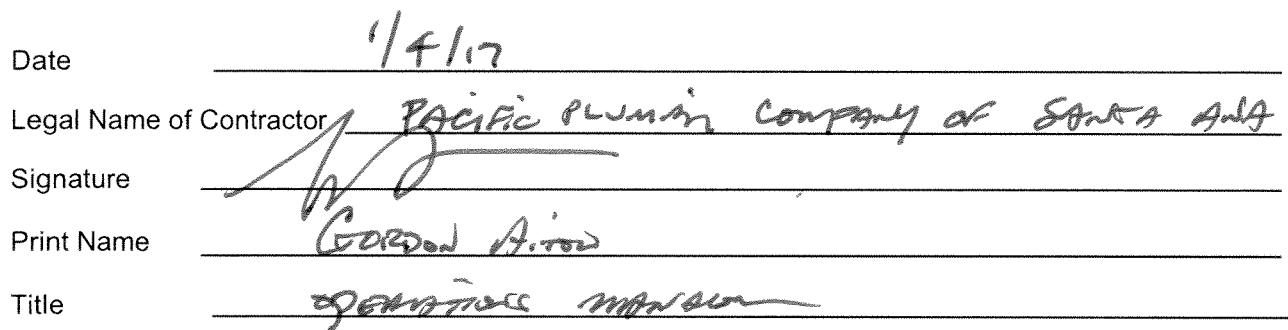 Date 1/4/17
Legal Name of Contractor PACIFIC PLUMBING COMPANY OF SANTA ANA
Signature
Print Name GORDON AITON
Title OPERATIONS MANAGER